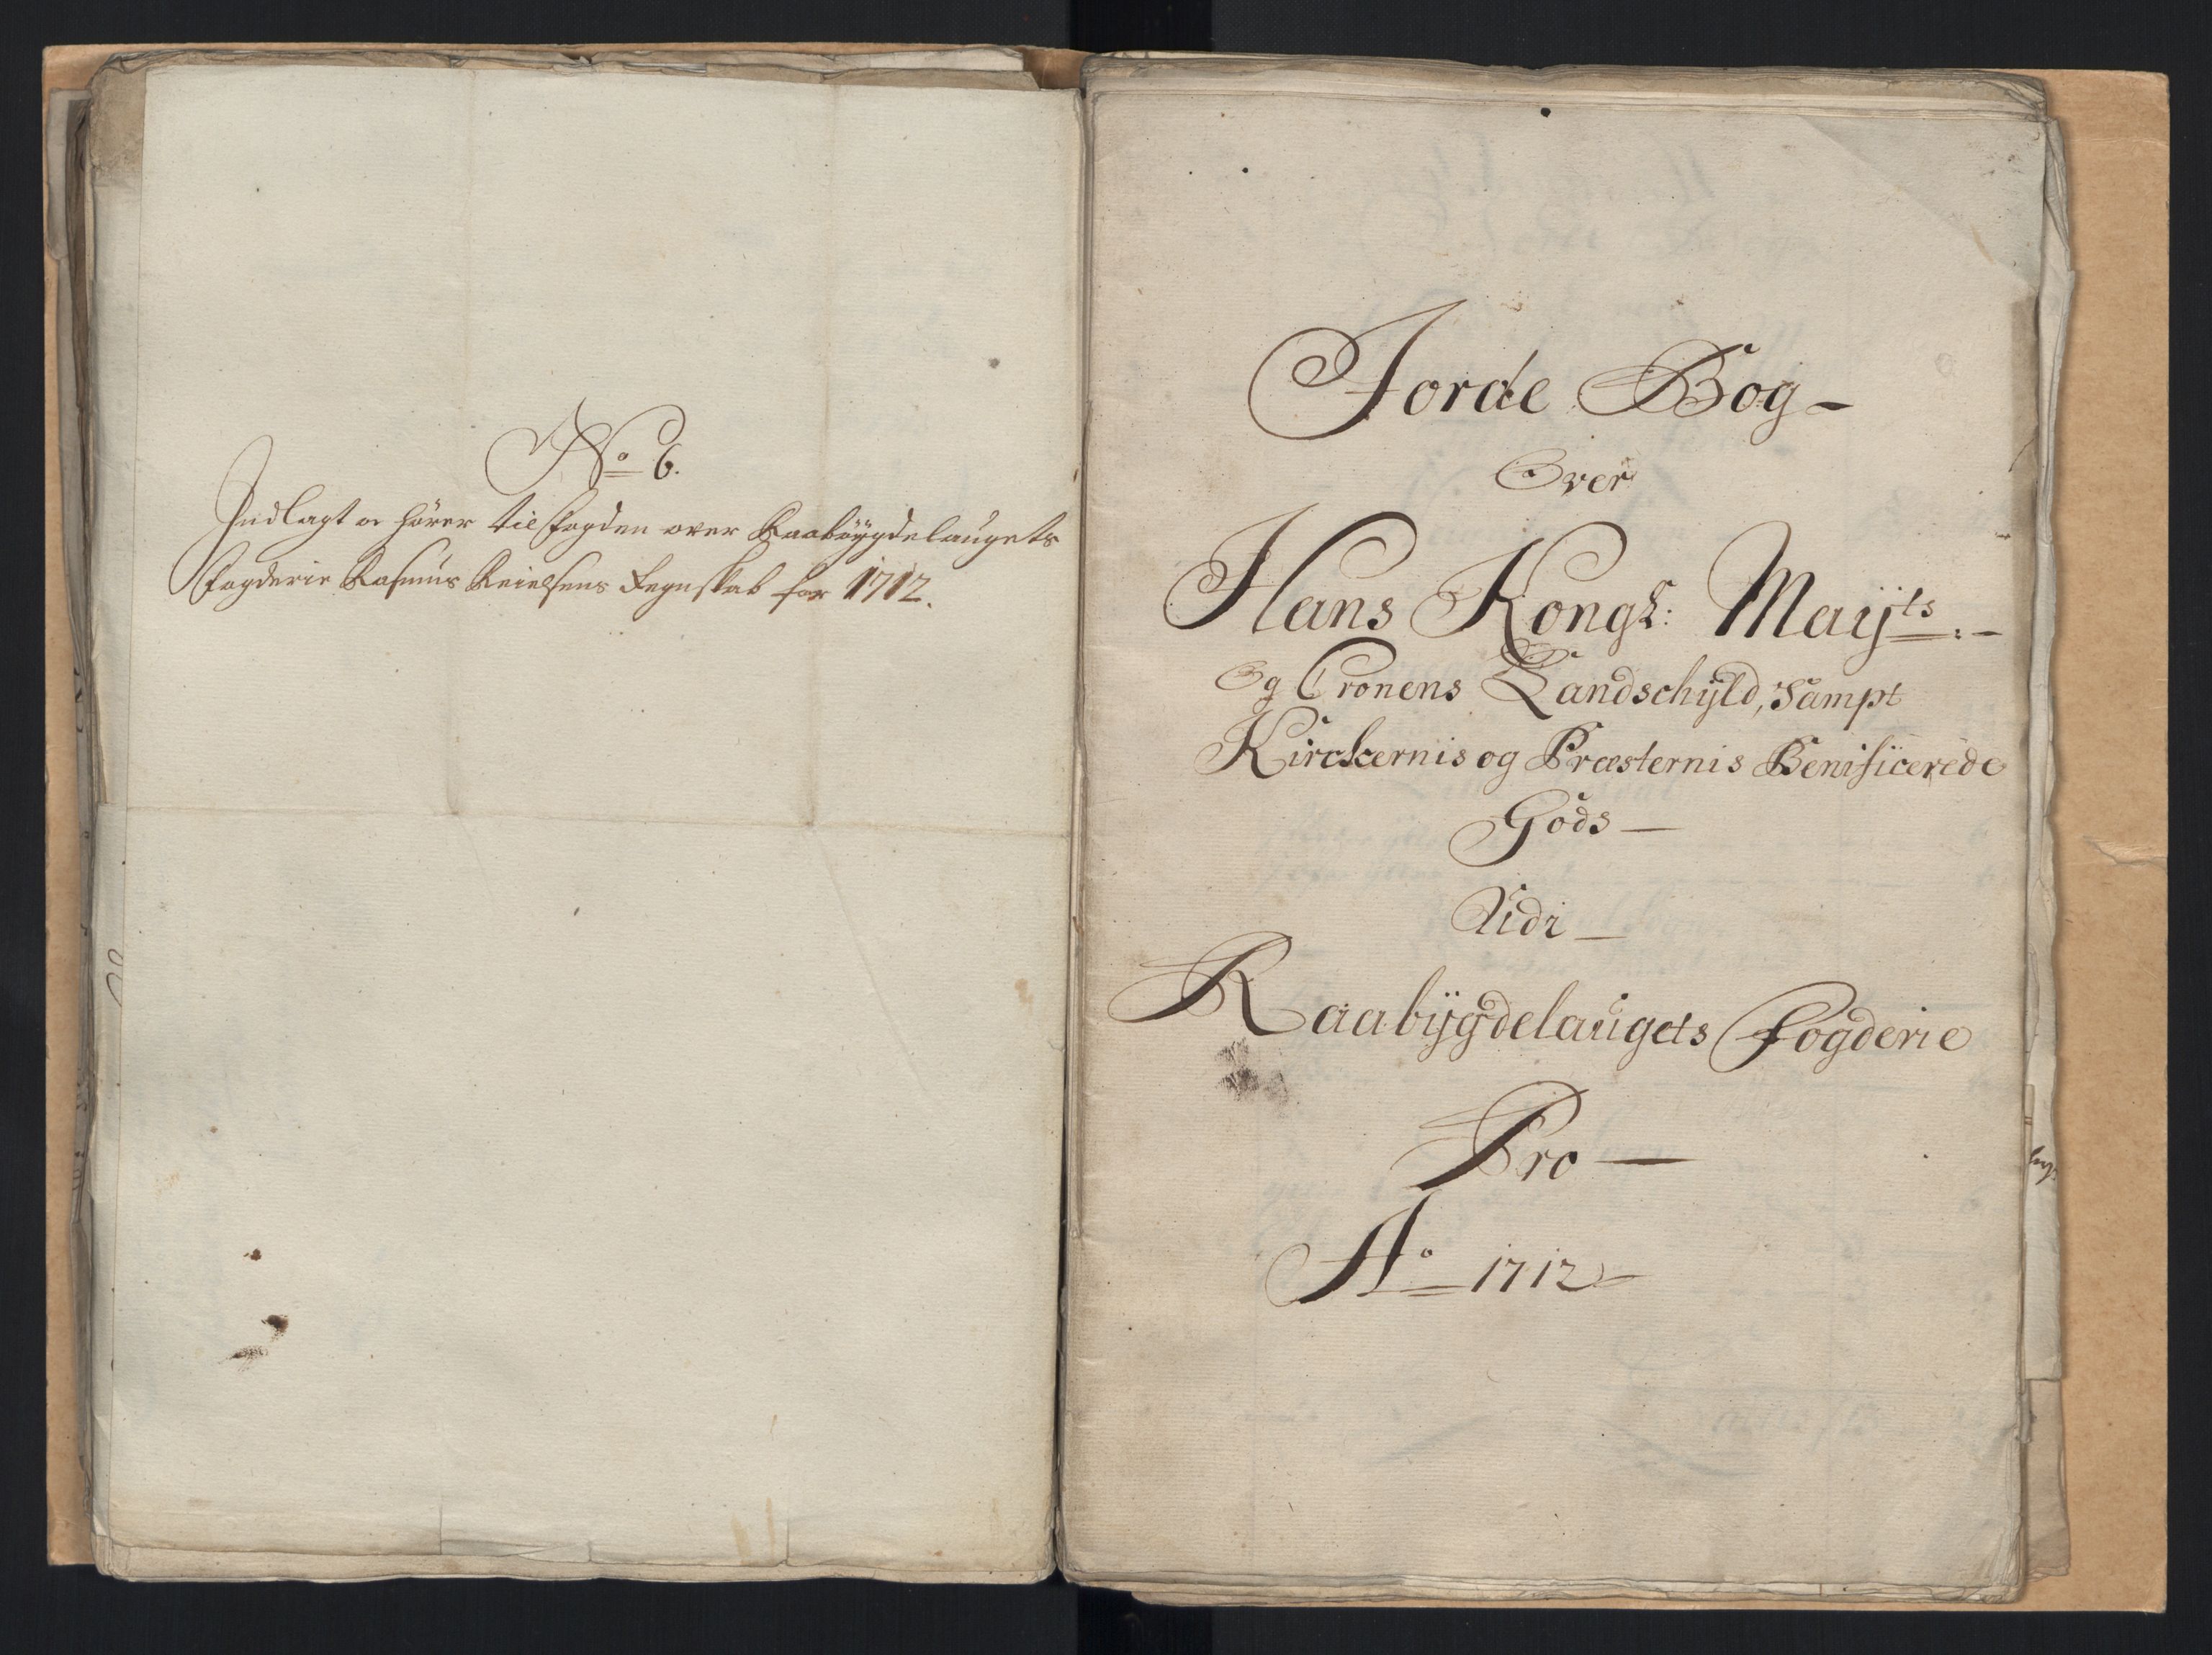 No 6.
Indlagt og hører til Fogden over Raabøygdelaugets
Fogderie Rasmus Regnskab for 1712.
Jorde Bog -
Over
Hans Kongl: Mayts: -
Og Cronens Landschÿld, Sampt
Kirckernis og Præsternis Benificerede
Gods -
Udi -
Raabÿgdelaugets Fogderie
Pro -
Ao 1712 -